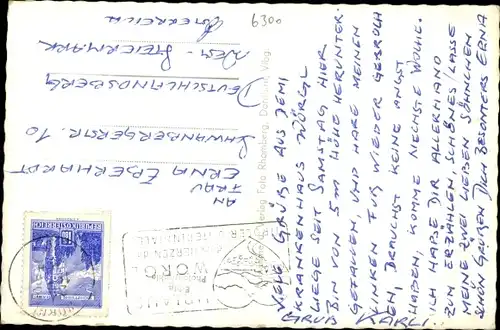 6300
VIELE GRÜSSE AUS DEM
KRANKENHAUS WÖRGL
LIEGE SEIT SAMSTAG HIER
BIN VON 5 M HÖHE HERUNTER
GEFALLEN, UND HABE MEINEN
LINKEN FUß WIEDER GEBROCH
EN, BRAUCHST KEINE ANGST
HABEN, KOMME NECHSTE WOCHE.
ICH HABE DIR ALLERHAND
ZUM ERZÄHLEN, SCHÖNES, LASSE
MEINE ZWEI GROßEN SÖHNCHEN
SCHÖN GRÜßEN DICH BESONTERS ERNA
GRUß KARLI.
AN
FRAU
ERNA EBERHARDT
SCHWANBERGERSTR. 10
DEUTSCHLANDSBERG
WEST-STEIERMARK
ÖSTERREICH
Verlag Foto Rhomberg, Dornbirn, Vlbg.
WÖRGL
IM HERZEN der
TIROLER
REPUBLIK ÖSTERREICH